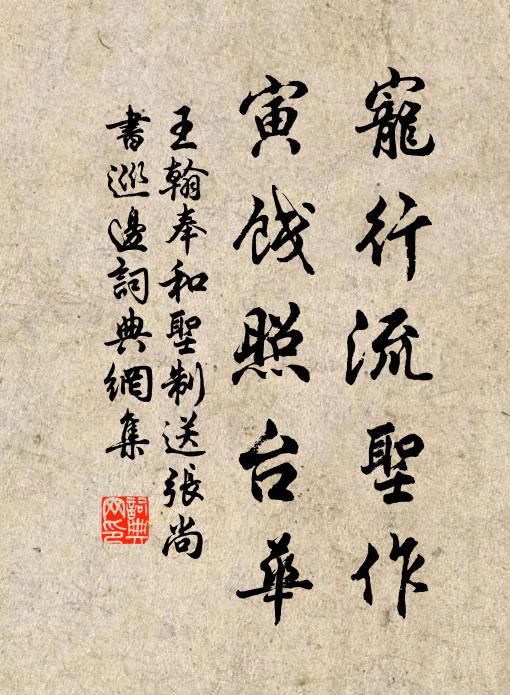 寵行流聖作
寅餞照台華
王翰奉和聖制送張尚
書巡邊詞典網集
詞典
网印